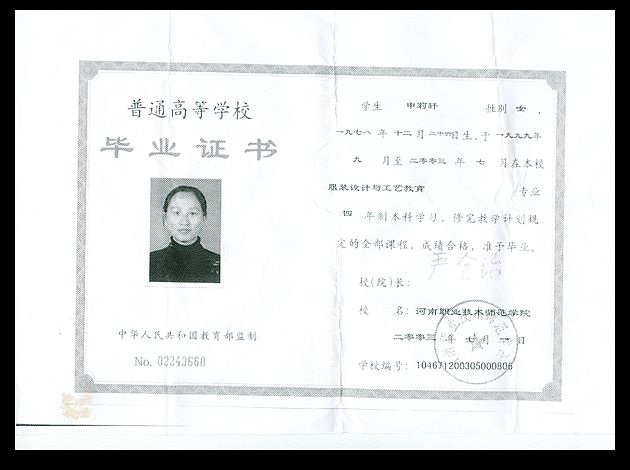 普通高等学校
毕业证书
中华人民共和国教育部监制
No. 02243660
学生 申莉轩 性别 女 .
一九七八 年 十二 月 二十六日生,于 一九九九年
九 月至 二零零三 年 七 月在本校
服装设计与工艺教育 专业
四 年制本科学习,修完教学计划规
定的全部课程,成绩合格,准予毕业。
校(院)长:
校 名: 河南职业技术师范学院
二零零三 年 七 月 一 日
学校编号: 104671200305000806